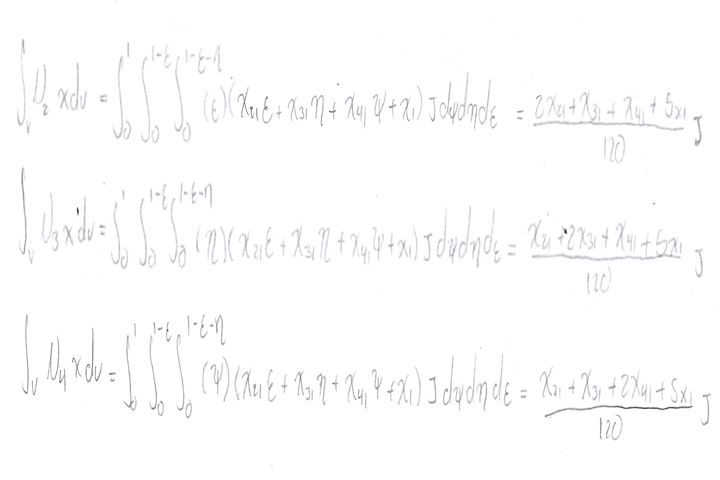 ∫_v N_2 x dv = ∫_0^1 ∫_0^{1-ε} ∫_0^{1-ε-η} (ε)(x_{21}ε + x_{31}η + x_{41}ψ + x_1) J dψ dη dε = \frac{2x_{21} + x_{31} + x_{41} + 5x_1}{120} J
∫_v N_3 x dv = ∫_0^1 ∫_0^{1-ε} ∫_0^{1-ε-η} (η)(x_{21}ε + x_{31}η + x_{41}ψ + x_1) J dψ dη dε = \frac{x_{21} + 2x_{31} + x_{41} + 5x_1}{120} J
∫_v N_4 x dv = ∫_0^1 ∫_0^{1-ε} ∫_0^{1-ε-η} (ψ)(x_{21}ε + x_{31}η + x_{41}ψ + x_1) J dψ dη dε = \frac{x_{21} + x_{31} + 2x_{41} + 5x_1}{120} J